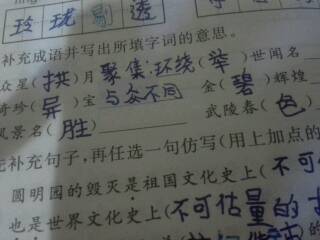 玲 珑 剔 透
补充成语并写出所填字词的意思。
众星(拱)月 聚集:环绕(举)世闻名
奇珍(异)宝 与众不同 金(碧)辉煌
武陵春(色)
风景名(胜)
先补充句子,再任选一句仿写(用上加点的
圆明园的毁灭是祖国文化史上(不可
也是世界文化史上(不可估量的